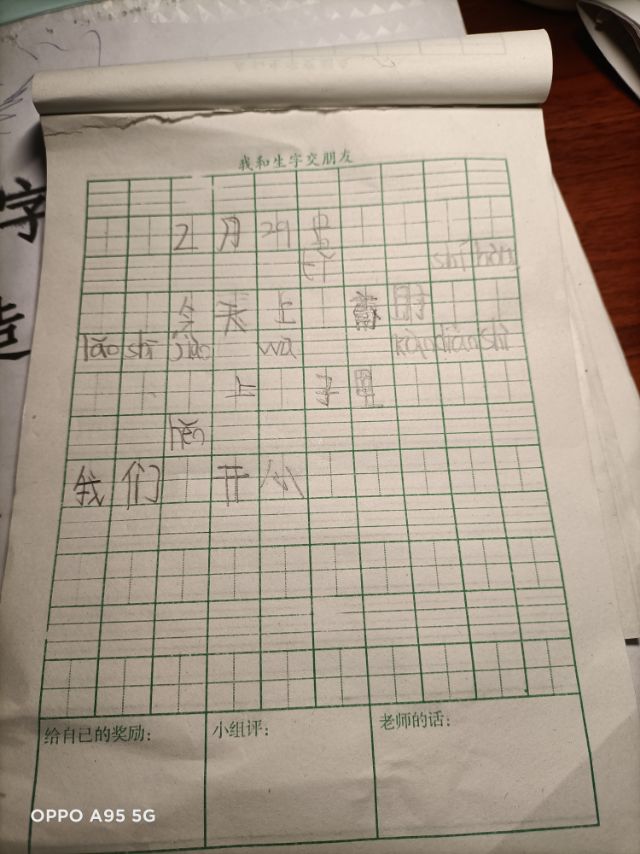 字
造
我和生字交朋友
2 月 29
shí hòu
今 天 上 时
lǎo shī jiào wǎ kàn diàn shì
上 子 里
hěn
我 们 开 心
给自己的奖励：
小组评：
老师的话：
OPPO A95 5G